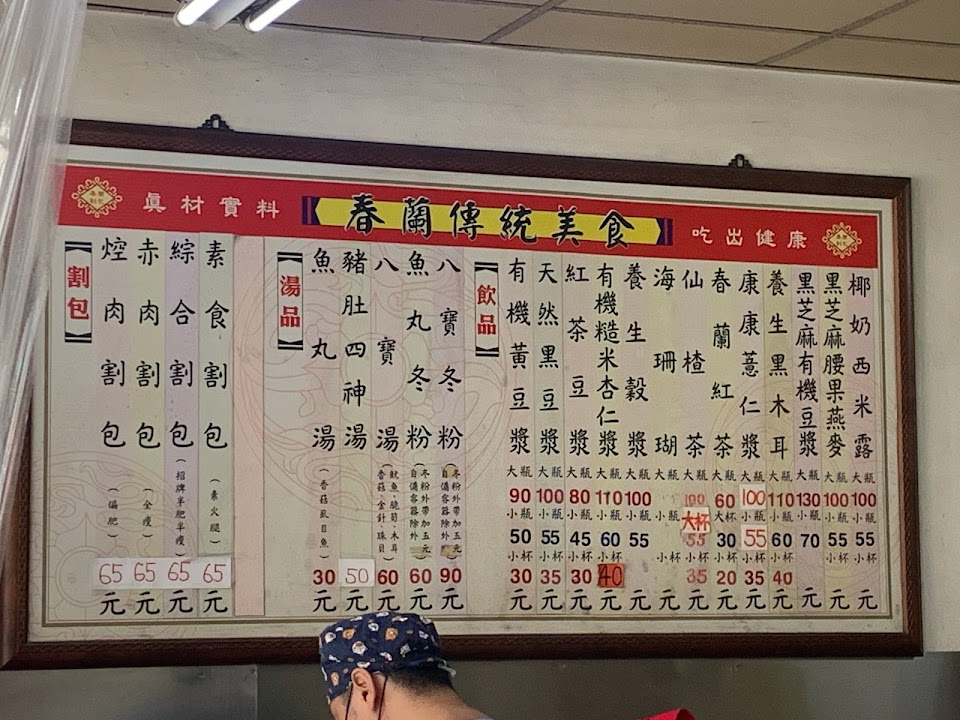 眞材實料
春蘭傳統美食
吃出健康
【割包】
焢肉割包(偏肥)65元
赤肉割包(全瘦)65元
綜合割包(招牌半肥半瘦)65元
素食割包(素火腿)65元
【湯品】
魚丸湯(香菇虱目魚)30元
豬肚四神湯50元
八寶湯(魷魚、脆筍、木耳 香菇、金針、珠貝)60元
魚丸冬粉(冬粉外帶加五元 自備容器除外)60元
八寶冬粉(冬粉外帶加五元 自備容器除外)90元
【飲品】
有機黃豆漿大瓶90小瓶50小杯30元
天然黑豆漿大瓶100小瓶55小杯35元
紅茶豆漿大瓶80小瓶45小杯30元
有機糙米杏仁漿大瓶110小瓶60小杯40元
養生穀漿大瓶100小瓶55元
海珊瑚大瓶小瓶小杯元
仙楂茶大瓶100大杯55小杯35元
春蘭紅茶大瓶60大杯30小杯20元
康康薏仁漿大瓶100小瓶55小杯35元
養生黑木耳大瓶110小瓶60小杯40元
黑芝麻有機豆漿大瓶130小瓶70元
黑芝麻腰果燕麥大瓶100小瓶55小杯元
椰奶西米露大瓶100小瓶55小杯元